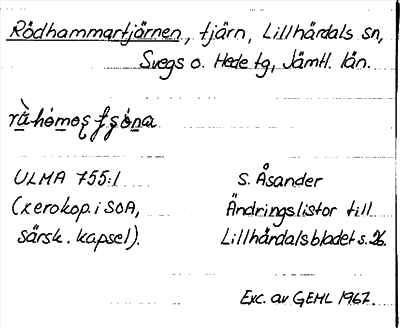 Rödhammartjärnen, tjärn, Lillhärdals sn,
Svegs o. Hede tg, Jämtl. län.
ULMA 755:1
(xerokop. i SOA,
särsk. kapsel).
S. Åsander
Ändringslistor till
Lillhärdalsbladet s. 26.
Exc. av GEHL 1967.